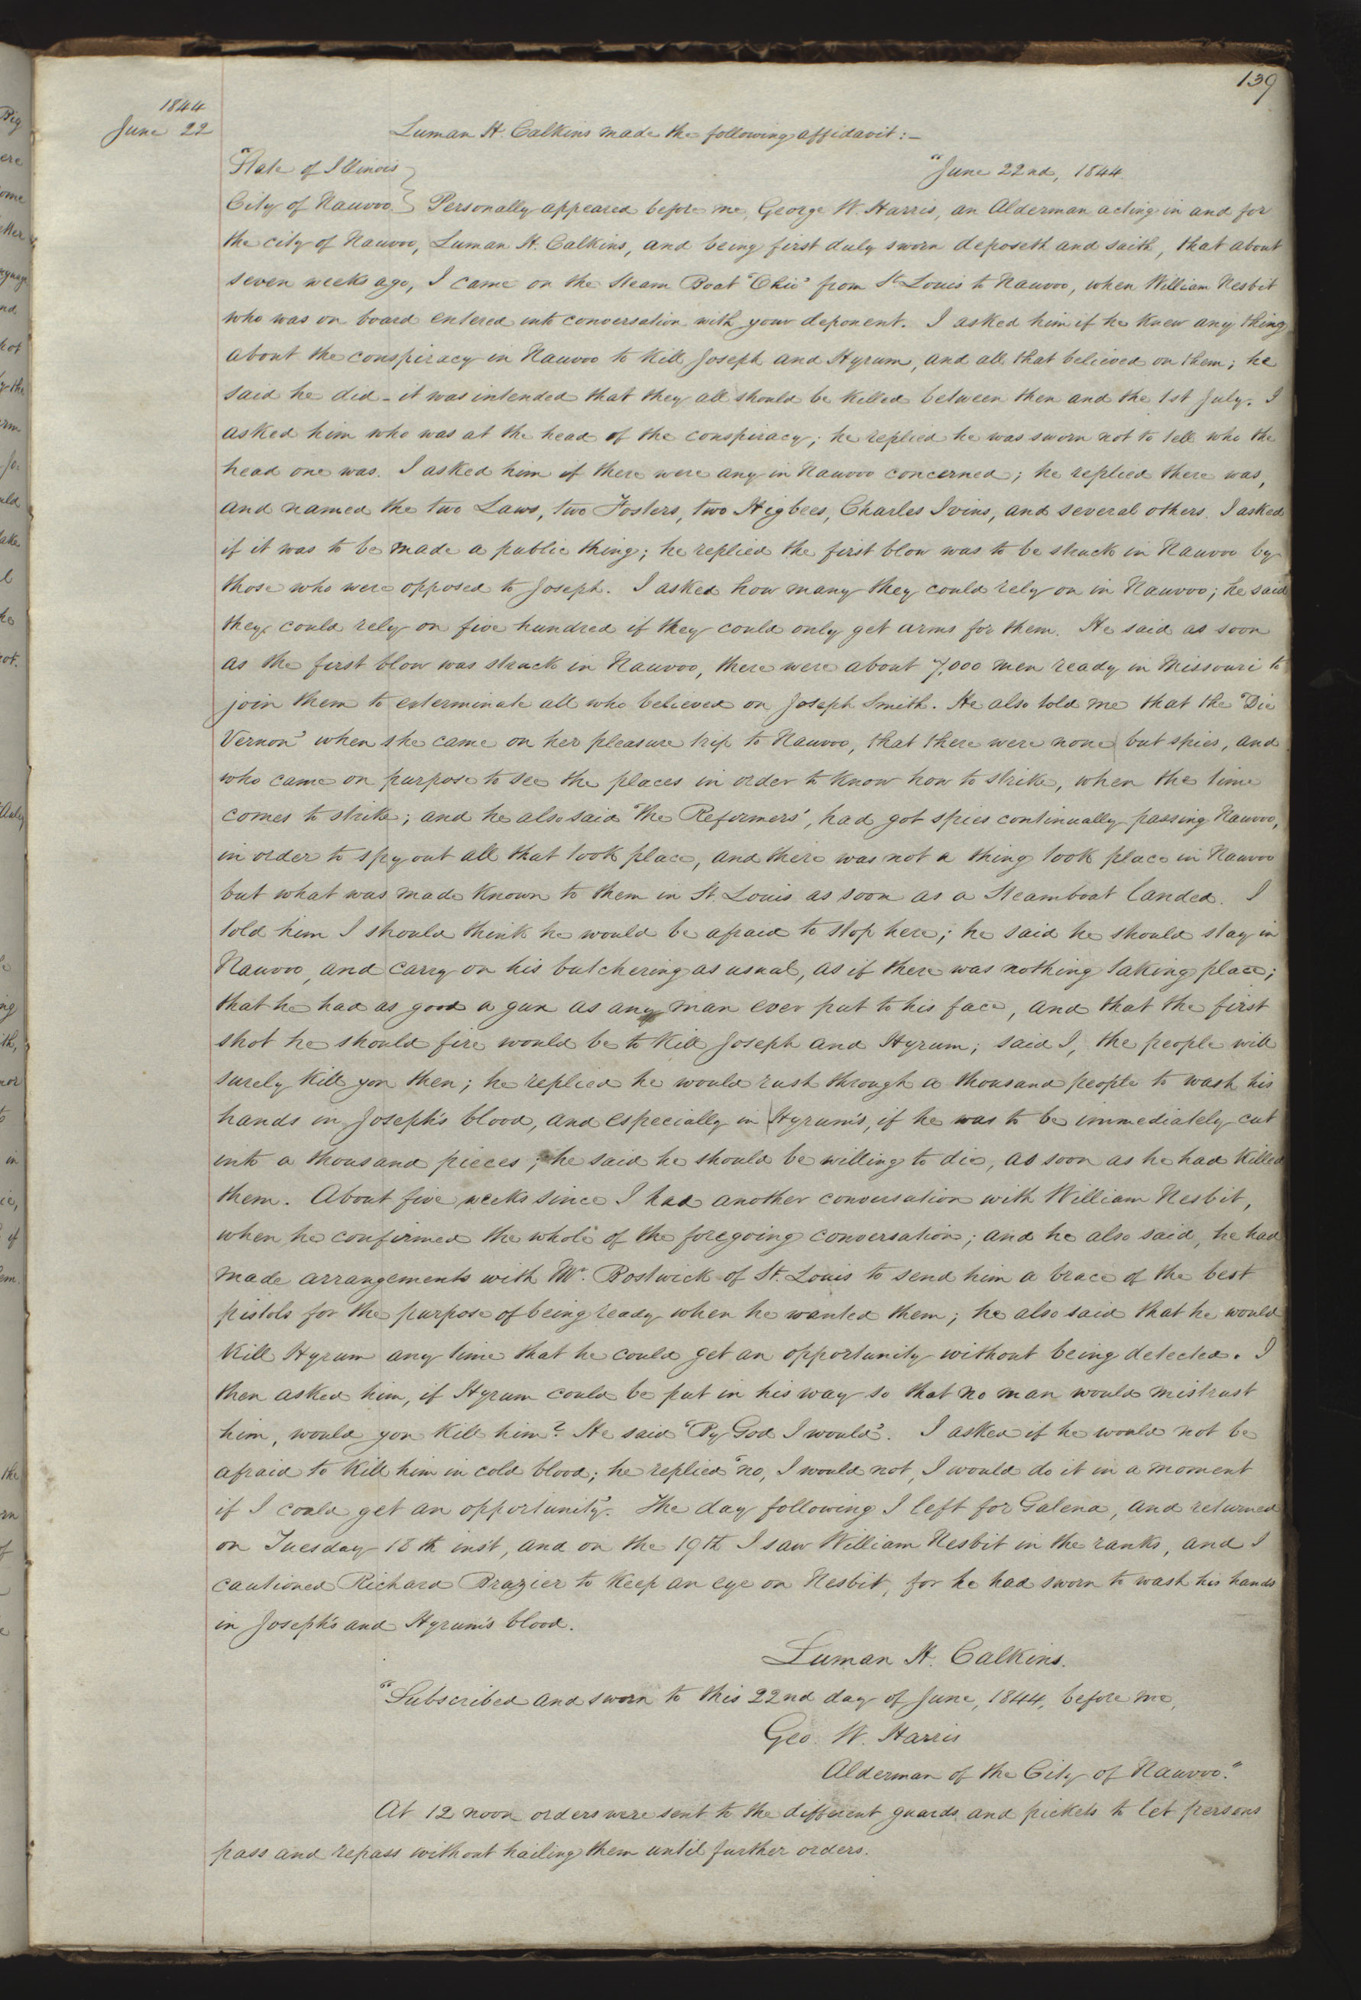 139
1844
June 22
Luman H. Calkins made the following affidavit:—
"State of Illinois }
"June 22nd, 1844.
City of Nauvoo } Personally appeared before me, George W. Harris, an Alderman acting in and for
the city of Nauvoo, Luman H. Calkins, and being first duly sworn deposeth and saith, that about
seven weeks ago, I came on the Steam Boat "Ohio" from St Louis to Nauvoo, when William Nesbit
who was on board entered into conversation with your deponent. I asked him if he knew any thing
about the conspiracy in Nauvoo to kill Joseph and Hyrum, and all that believed on them; he
said he did – it was intended that they all should be killed between then and the 1st July. I
asked him who was at the head of the conspiracy; he replied he was sworn not to tell who the
head one was. I asked him if there were any in Nauvoo concerned; he replied there was,
and named the two Laws, two Fosters, two Higbees, Charles Ivins, and several others. I asked
if it was to be made a public thing; he replied the first blow was to be struck in Nauvoo by
those who were opposed to Joseph. I asked how many they could rely on in Nauvoo; he said
they could rely on five hundred if they could only get arms for them. He said as soon
as the first blow was struck in Nauvoo, there were about 7,000 men ready in Missouri to
join them to exterminate all who believed on Joseph Smith. He also told me that the "Die
Vernon" when she came on her pleasure trip to Nauvoo, that there were none but spies, and
who came on purpose to see the places in order to know how to strike, when the time
comes to strike; and he also said "the Reformers", had got spies continually passing Nauvoo,
in order to spy out all that took place, and there was not a thing took place in Nauvoo
but what was made known to them in St. Louis as soon as a Steamboat landed. I
told him I should think he would be afraid to stop here; he said he should stay in
Nauvoo, and carry on his butchering as usual, as if there was nothing taking place;
that he had as good a gun as any man ever put to his face, and that the first
shot he should fire would be to kill Joseph and Hyrum; said I, the people will
surely kill you then; he replied he would rush through a thousand people to wash his
hands in Joseph's blood, and especially in Hyrum's, if he was to be immediately cut
into a thousand pieces; he said he should be willing to die, as soon as he had killed
them. About five weeks since I had another conversation with William Nesbit,
when he confirmed the whole of the foregoing conversation; and he also said, he had
made arrangements with Mr. Bostwick of St. Louis to send him a brace of the best
pistols for the purpose of being ready when he wanted them; he also said that he would
kill Hyrum any time that he could get an opportunity without being detected. I
then asked him, if Hyrum could be put in his way so that no man would mistrust
him, would you kill him? He said "By God I would". I asked if he would not be
afraid to kill him in cold blood; he replied "no, I would not, I would do it in a moment
if I could get an opportunity". The day following I left for Galena, and returned
on Tuesday 18th inst, and on the 19th I saw William Nesbit in the ranks, and I
cautioned Richard Brazier to keep an eye on Nesbit, for he had sworn to wash his hands
in Joseph's and Hyrum's blood.
Luman H. Calkins.
"Subscribed and sworn to this 22nd day of June, 1844, before me,
Geo. W. Harris
Alderman of the City of Nauvoo."
At 12 noon orders were sent to the different guards and pickets to let persons
pass and repass without hailing them until further orders.